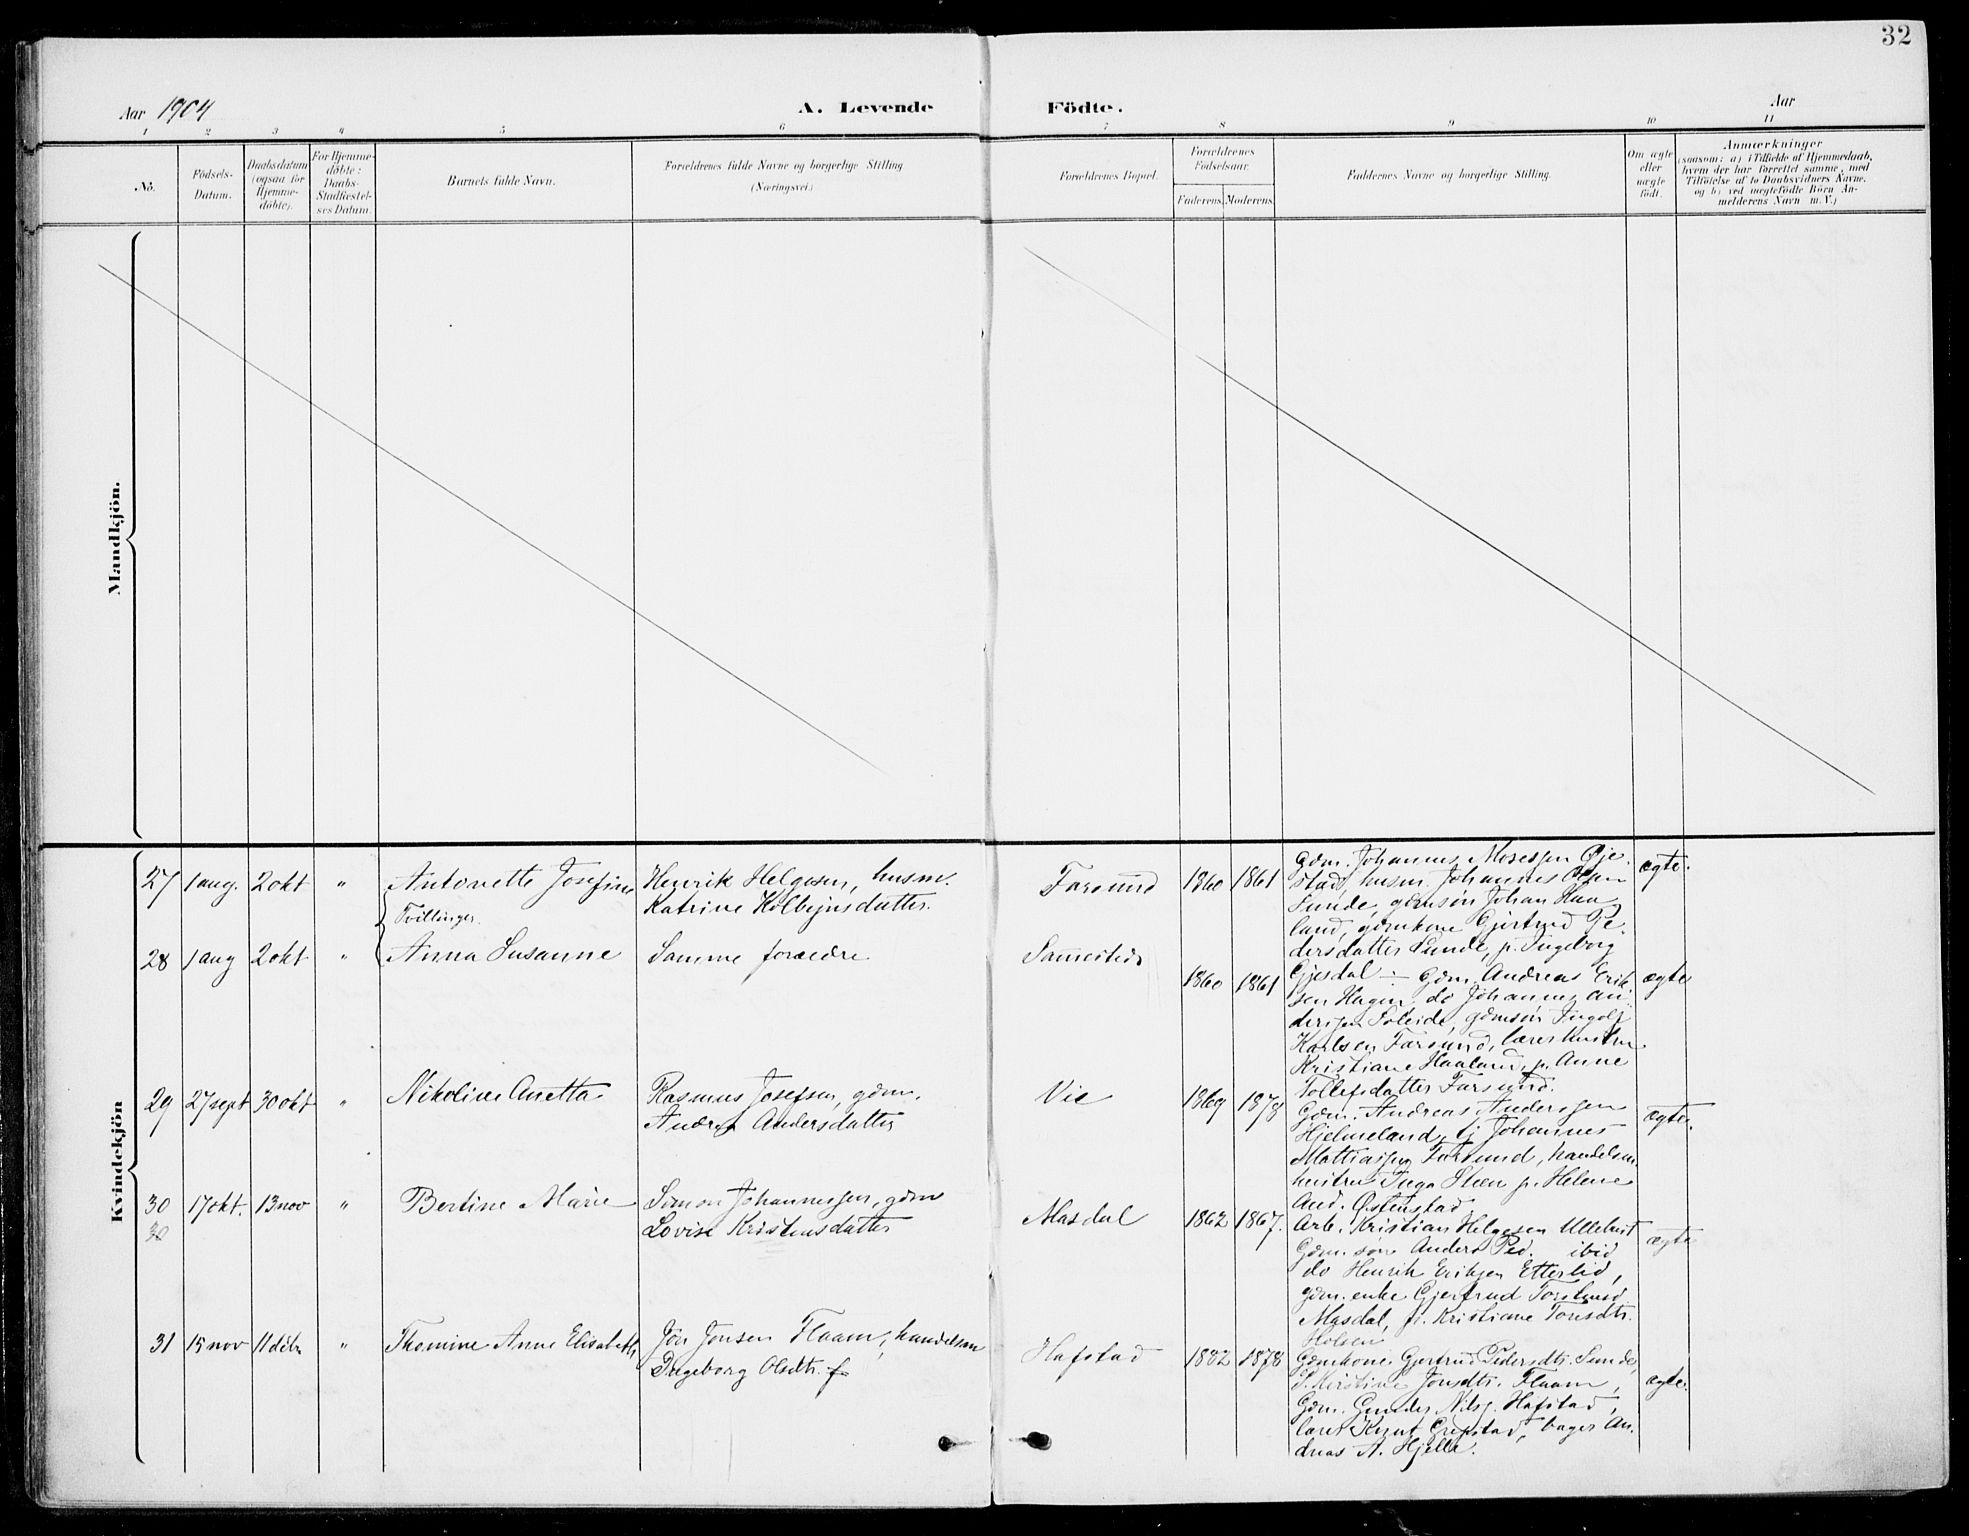 32
Aar 1904
A. Levende Födte.
Aar
1 2 3 4 5 6 7 8 9 10 11
No.
Födsels-
Datum.
Daabsdatum
(ogsaa for
Hjemme-
döbte).
For Hjemme-
döbte:
Daabs-
Stadfæstel-
ses Datum
Barnets fulde Navn.
Forældrenes fulde Navne og borgerlige Stilling
(Næringsvei.)
Forældrenes Bopæl.
Forældrenes
Fødselsaar.
Faderens. Moderens.
Faddernes Navne og borgerlige Stilling.
Om ægte
eller
uægte
födt.
Anmærkninger
(saasom: a) i Tilfælde af Hjemmedaab,
hvem der har forrettet samme, med
Tilföielse af to Daabsvidners Navne.
og b) ved uægtefödte Börn An-
melderens Navn m. V.)
Mandkjön.
Kvindekjön
27 1 aug. 2 okt " Antonette Josefine
Tvillinger.
Henrik Helgesen, husm.
Katrine Kolbejnsdatter.
Farsund 1860 1861
Gdm. Johannes Mosessen Øje-
stad, husm. Johannes Olsen
Sunde, gdmsøn Johan Haa
land, gdmkone Gjertrud Pe-
dersdatter Sunde, p. Ingeborg
Gjesdal
ægte.
28 1 aug 2 okt " Anna Susanne
Samme forældre
Samesteds 1860 1861
Gdm. Andreas Erik
sen Hagen, do Johannes An-
derssen Soleide, gdmsøn Ingolf
Karlsen Farsund, lærerhustru
Kristiane Haaland, p. Anne
Tollefsdatter Farsund.
ægte
29 27 sept 30 okt " Nikoline Anetta
Rasmus Josefsen, gdm.
Andrea Andersdatter
Vie 1869 1878
Gdm. Andreas Anderssen
Hjelmeland, Johannes
Mattiassen Farsund, handelsm.
hustru Inga Steen p. Helene
And. Østenstad.
ægte.
30 17 okt. 13 nov " Bertine Marie
30
Simon Johannessen, gdm
Lovise Kristensdatter
Masdal 1862 1867.
Arb. Kristian Helgesen Ullebust
Gdm. søn Anders Ped. ibid
do Henrik Eriksen Etterlid,
gdm. enke Gjertrud
Masdal, p. Kristiane Tonsdtr.
Holsen
ægte
31 15 nov 11 debr " Thomine Anne Elisabeth
Jon Jonsen Flaam, handelsm
Ingeborg Olsdtr.
Hafstad 1882 1878
Gdmkone Gjertrud Pedersdtr. Sunde,
Kristine Jonsdtr. Flaam,
Gdm. Gunder Nilss. Hafstad,
Knut Grepstad, bager An-
dreas A. Hjelle.
ægte.